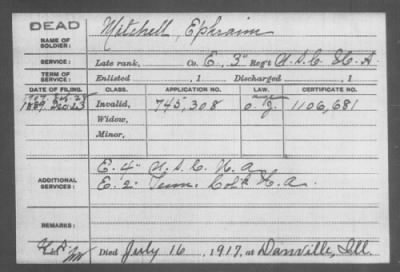 DEAD
NAME OF SOLDIER: Mitchell, Ephraim
SERVICE: Late rank, Co. E, 3" Reg't U.S.C. H.A.
TERM OF SERVICE: Enlisted , 1 Discharged , 1
DATE OF FILING. CLASS. APPLICATION NO. LAW. CERTIFICATE NO.
1889. Invalid, 745,308 1106,681
Widow,
Minor,
ADDITIONAL SERVICES: E. 4" U.S.C. H.A.
E. 2" Tenn. Col'd H.A.
REMARKS:
Died July 16, 1917, at Danville, Ill.